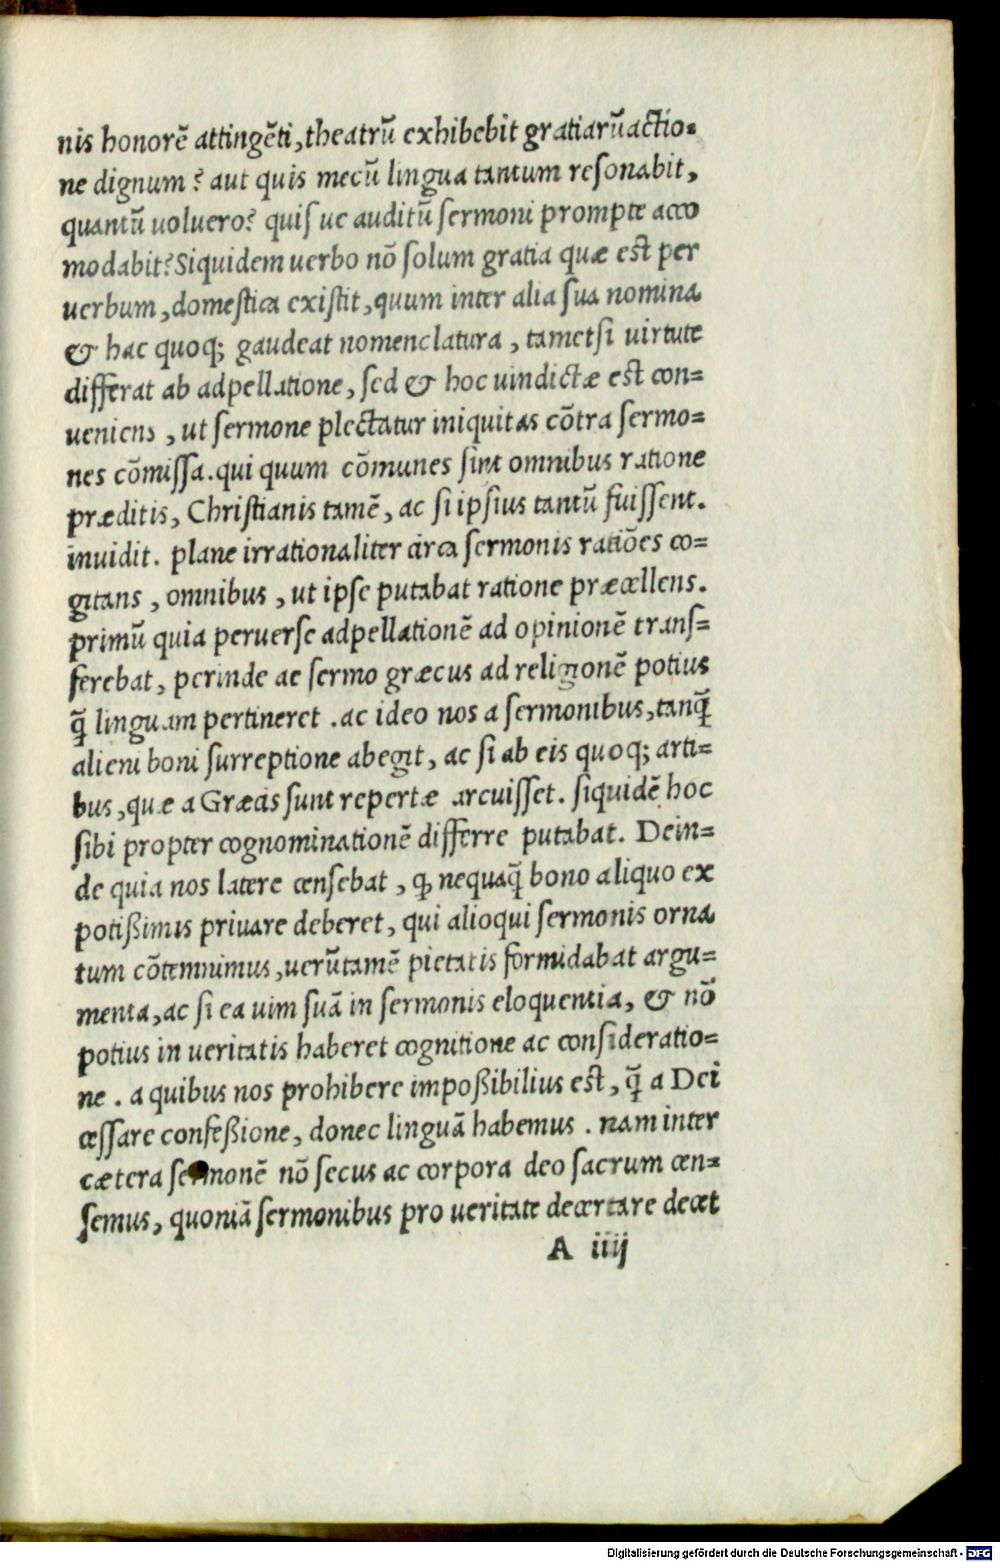 nis honorē attingēti, theatrū exhibebit gratiarūactio-
ne dignum? aut quis mecū lingua tantum resonabit,
quantū uoluero? quis ue auditū sermoni prompte acco
modabit? Siquidem uerbo nō solum gratia quæ est per
uerbum, domestica existit, quum inter alia sua nomina
& hac quoq; gaudeat nomenclatura, tametsi uirtute
differat ab adpellatione, sed & hoc uindictæ est con=
ueniens, ut sermone plectatur iniquitas cōtra sermo=
nes cōmissa. qui quum cōmunes sint omnibus ratione
præditis, Christianis tamē, ac si ipsius tantū fuissent.
inuidit. plane irrationaliter circa sermonis ratiōes co=
gitans, omnibus, ut ipse putabat ratione præcellens.
primū quia peruerse adpellationē ad opinionē trans=
ferebat, perinde ac sermo græcus ad religionē potius
q̄ linguam pertineret. ac ideo nos a sermonibus, tanq̄
alieni boni surreptione abegit, ac si ab eis quoq; arti=
bus, quæ a Græcis sunt repertæ arcuisset. siquidē hoc
sibi propter cognominationē differre putabat. Dein=
de quia nos latere censebat, ꝙ nequaq̄ bono aliquo ex
potißimis priuare deberet, qui alioqui sermonis orna
tum cōtemnimus, uerūtamē pietatis formidabat argu=
menta, ac si ea uim suā in sermonis eloquentia, & nō
potius in ueritatis haberet cognitione ac consideratio=
ne. a quibus nos prohibere impoßibilius est, q̄ a Dei
cessare confeßione, donec linguā habemus. nam inter
cætera sermonē nō secus ac corpora deo sacrum cen=
semus, quoniā sermonibus pro ueritate decertare decet
A iiij
Digitalisierung gefördert durch die Deutsche Forschungsgemeinschaft - DFG